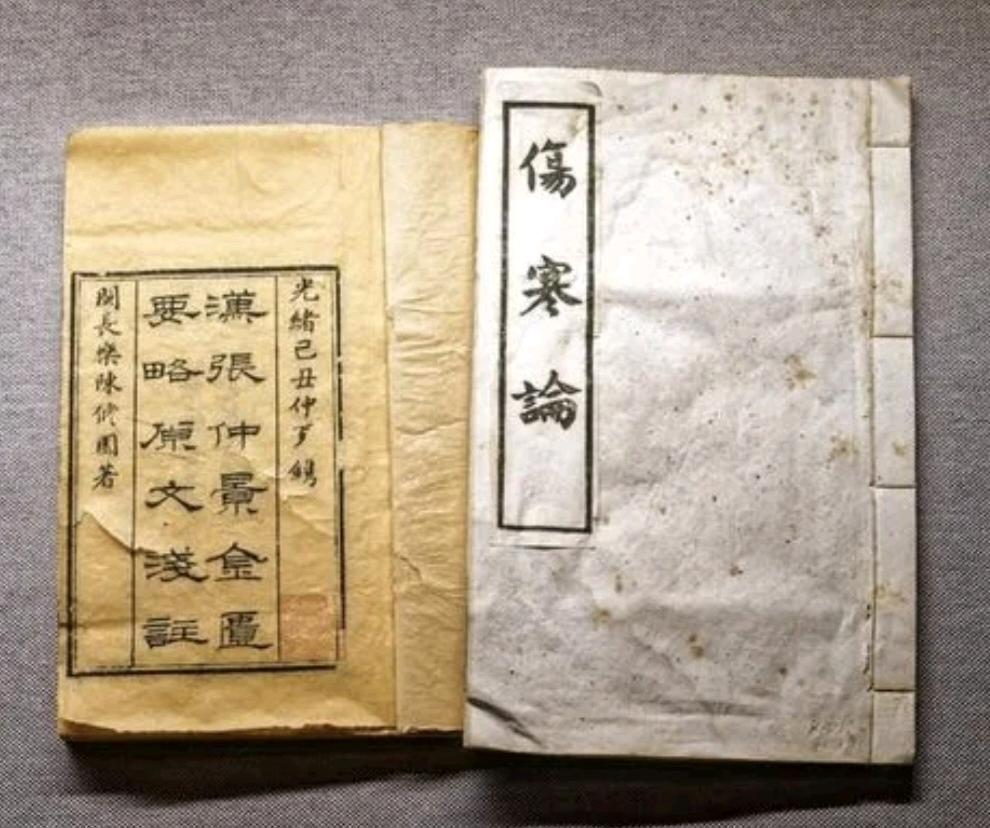 傷寒論
光緒己丑仲夏鐫
漢張仲景金匱
要略原文淺註
閩長樂陳修園著